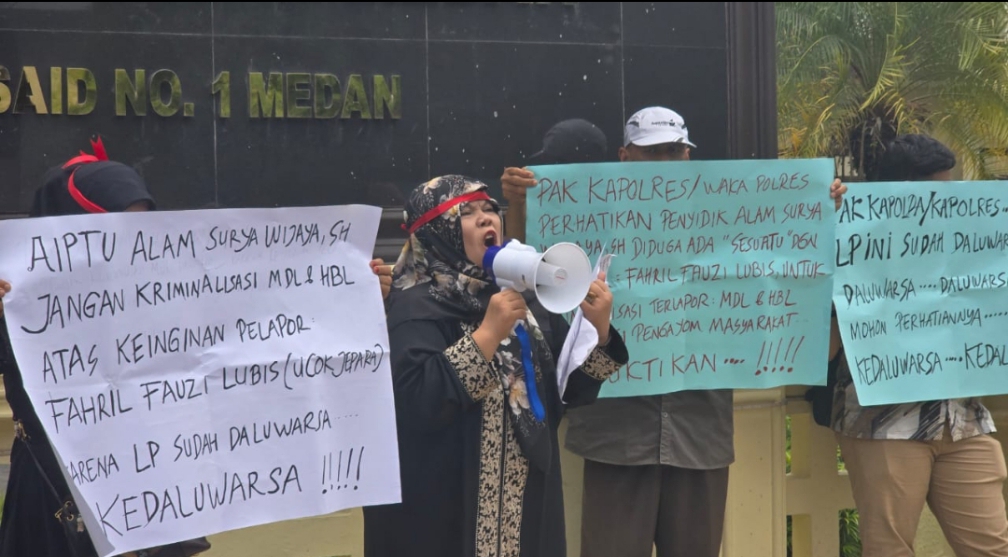 SAID NO. 1 MEDAN
AIPTU ALAM SURYA WIJAYA, SH
JANGAN KRIMINALISASI MDL & HBL
ATAS KEINGINAN PELAPOR:
FAHRIL FAUZI LUBIS (UCOK JEPARA)
KARENA LP SUDAH DALUWARSA....
KEDALUWARSA !!!!!
PAK KAPOLRES/WAKA POLRES
PERHATIKAN PENYIDIK ALAM SURYA
SH DIDUGA ADA "SESUATU" DGN
: FAHRIL FAUZI LUBIS, UNTUK
TERLAPOR: MDL & HBL
PENGAYOM MASYARAKAT...
KTIKAN .... !!!!!
PAK KAPOLDA/KAPOLRES
LP INI SUDAH DALUWARS
DALUWARSA....DALUWARS
MOHON PERHATIANNYA....
KEDALUWARSA....KEDA